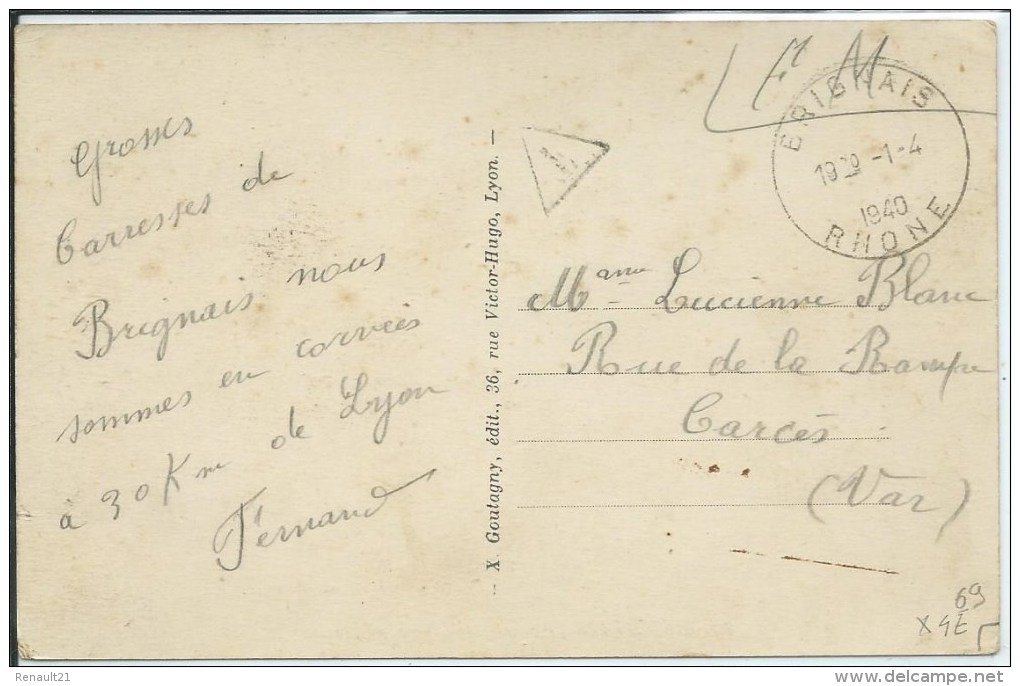 Grosses
Carresses de
Brignais nous
sommes en corvées
à 30 Km de Lyon
Fernand
— X. Goutagny, édit., 36, rue Victor-Hugo, Lyon. —
F M
BRIGNAIS
19 -1-4
1940
RHONE
Mame Lucienne Blanc
Rue de la Rampe
Carcès
(Var)
69
Renault21
delcampe.net